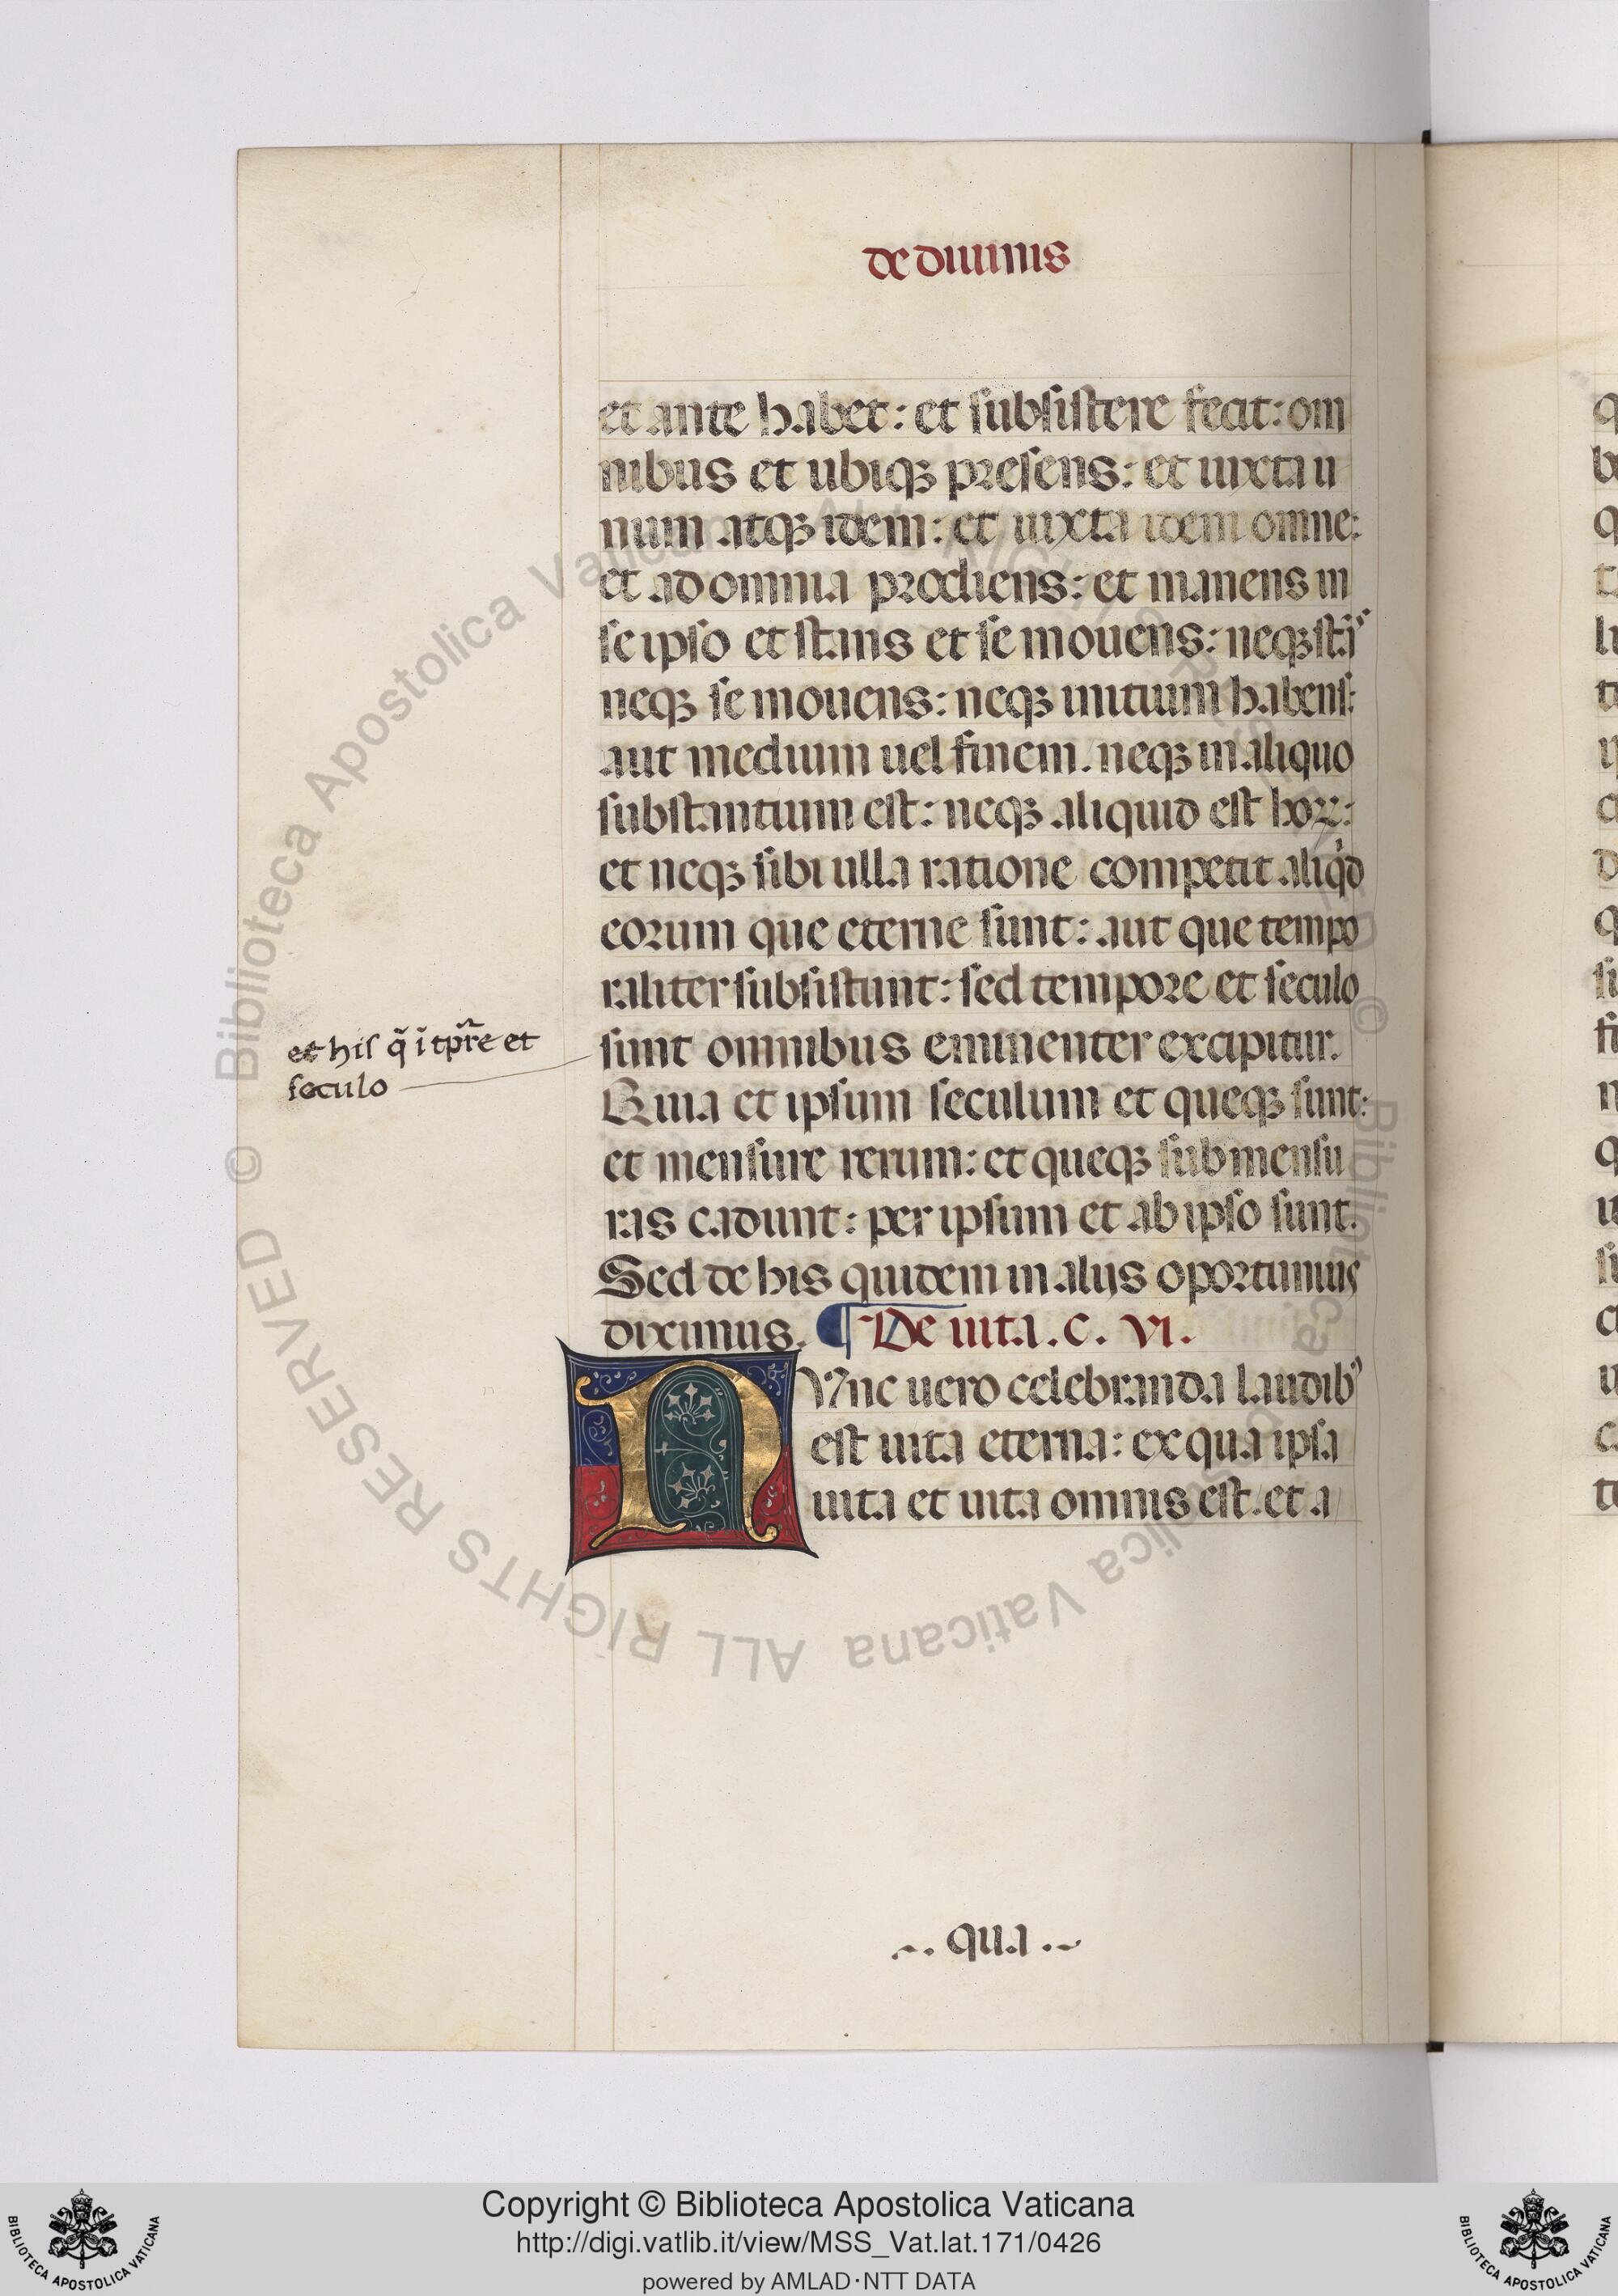 de diuinis
et ante habet: et subsistere fecit: om
nibus et ubiqꝫ presens: et iuxta u
num atqꝫ idem: et iuxta idem omne:
et ad omnia prodiens: et manens in
se ipso et stans et se mouens: neqꝫ stãs
neqꝫ se mouens: neqꝫ initium habens:
aut medium uel finem. neqꝫ in aliquo
substantium est: neqꝫ aliquid est hoꝝ:
et neqꝫ sibi ulla ratione competit aliqd
eorum que eterne sunt: aut que tempo
raliter subsistunt: sed tempore et seculo
et his q̃ ĩ tp̃re et
seculo
sunt omnibus eminenter excipitur.
Quia et ipsum seculum et queqꝫ sunt:
et mensure rerum: et queqꝫ sub mensu
ras cadunt: per ipsum et ab ipso sunt.
Sed de his quidem in alijs oportunius
diximus. ¶ De uita. c. VI.
NVnc uero celebranda laudibꝰ
est uita eterna: ex qua ipsa
uita et uita omnis est. et a
qua
© Biblioteca Apostolica Vaticana ALL RIGHTS RESERVED
© Biblioteca Apostolica Vaticana ALL RIGHTS RESERVED
Copyright © Biblioteca Apostolica Vaticana
http://digi.vatlib.it/view/MSS_Vat.lat.171/0426
powered by AMLAD·NTT DATA
BIBLIOTECA APOSTOLICA VATICANA
BIBLIOTECA APOSTOLICA VATICANA